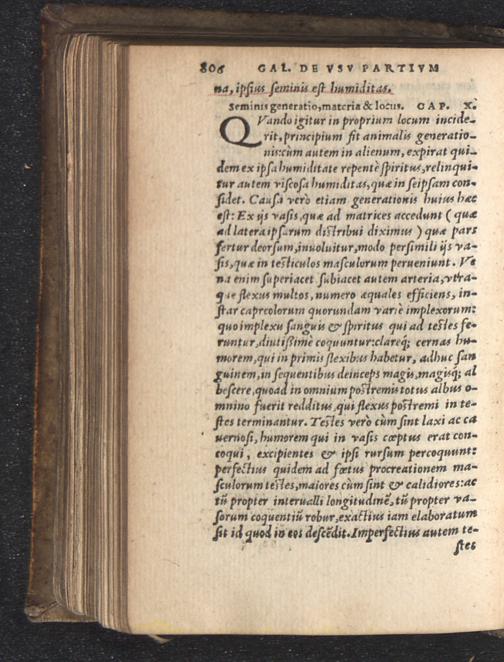 806 GAL. DE VSV PARTIVM
na, ipsius seminis est humiditas.
Seminis generatio, materia & locus. CAP. X.
QVando igitur in proprium locum incide-
rit, principium fit animalis generatio-
nis: cùm autem in alienum, expirat qui-
dem ex ipsa humiditate repentè spiritus, relinqui-
tur autem viscosa humiditas, quæ in seipsam con-
sidet. Causa verò etiam generationis huius hæc
est: Ex ijs vasis, quæ ad matrices accedunt ( quæ
ad latera ipsarum distribui diximus ) quæ pars
fertur deorsum, inuoluitur, modo persimili ijs va-
sis, quæ in testiculos masculorum perueniunt. Ve
na enim superiacet subiacet autem arteria, vtra-
que flexus multos, numero æquales efficiens, in-
star capreolorum quorundam variè implexorum:
quo implexu sanguis & spiritus qui ad testes fe-
runtur, diutissime coquuntur: clareq; cernas hu-
morem, qui in primis flexibus habetur, adhuc san
guinem, in sequentibus deinceps magis, magisq; al
bescere, quoad in omnium postremis totus albus o-
mnino fuerit redditus, qui flexus postremi in te-
stes terminantur. Testes verò cùm sint laxi ac ca
uernosi, humorem qui in vasis cœptus erat con-
coqui, excipientes & ipsi rursum percoquunt:
perfectius quidem ad fœtus procreationem ma-
sculorum testes, maiores cùm sint & calidiores: ac
tũ propter interualli longitudinẽ, tũ propter va-
sorum coquentiũ robur, exactius iam elaboratum
sit id quod in eos descẽdit. Imperfectius autem te-
stes